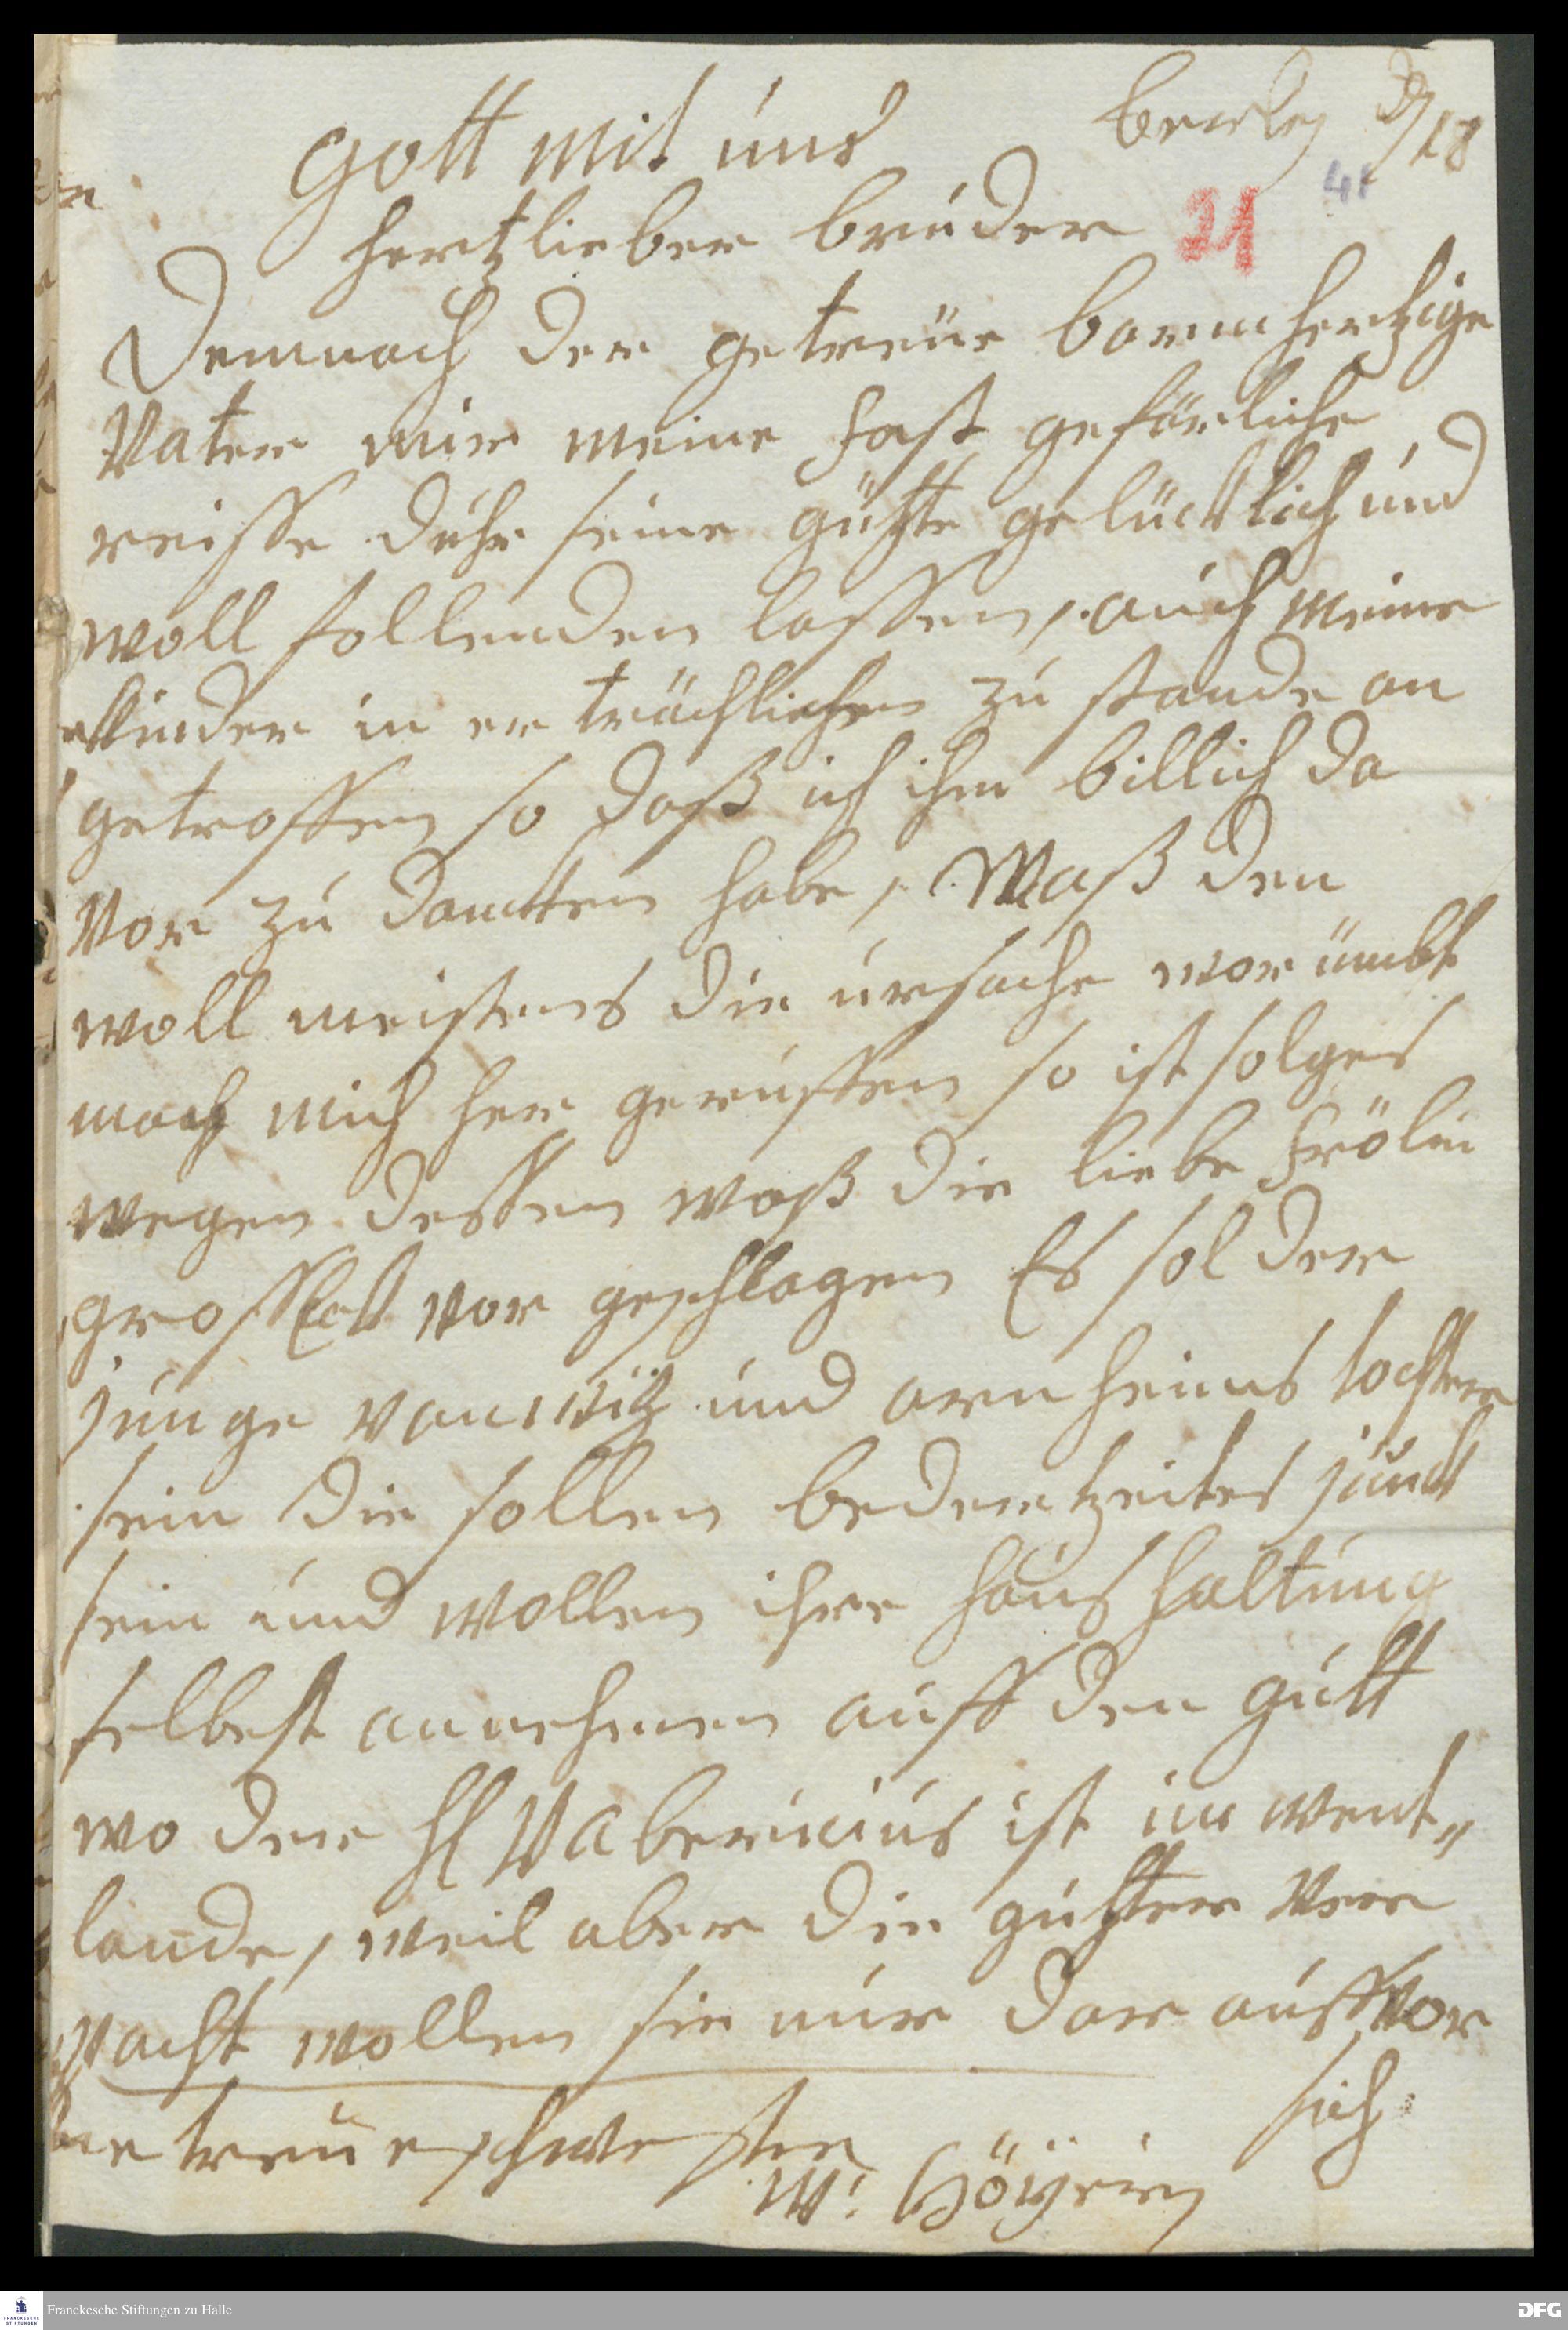 gott mit uns
41
hertzlieber bruder 21
Demnach der getreüe barmhertzige
Vater mir meine fast geförliche
reisse duhr seine gühte gelücklich und
woll follenden lassen, auch meine
kinder in er trächlichen zu stande an
getroffen so daß ich ihm billich da
vor zu dancken habe, Waß den
woll meistens die ursache war ümb
mach mich her geruffen so ist solges
wegen dessen waß die liebe frölin
vor geschlagen Es sol der
junge und arnheims tochter
sein die sollen beder zeites junck
sein und wollen ihre haushaltung
selbest annehmen auff den gutt
wo der H ist im went„
lande, weil aber die gühter ver
pacht wollen sie nur dar auff vor
sich
treue schwester
Franckesche Stiftungen zu Halle
DFG